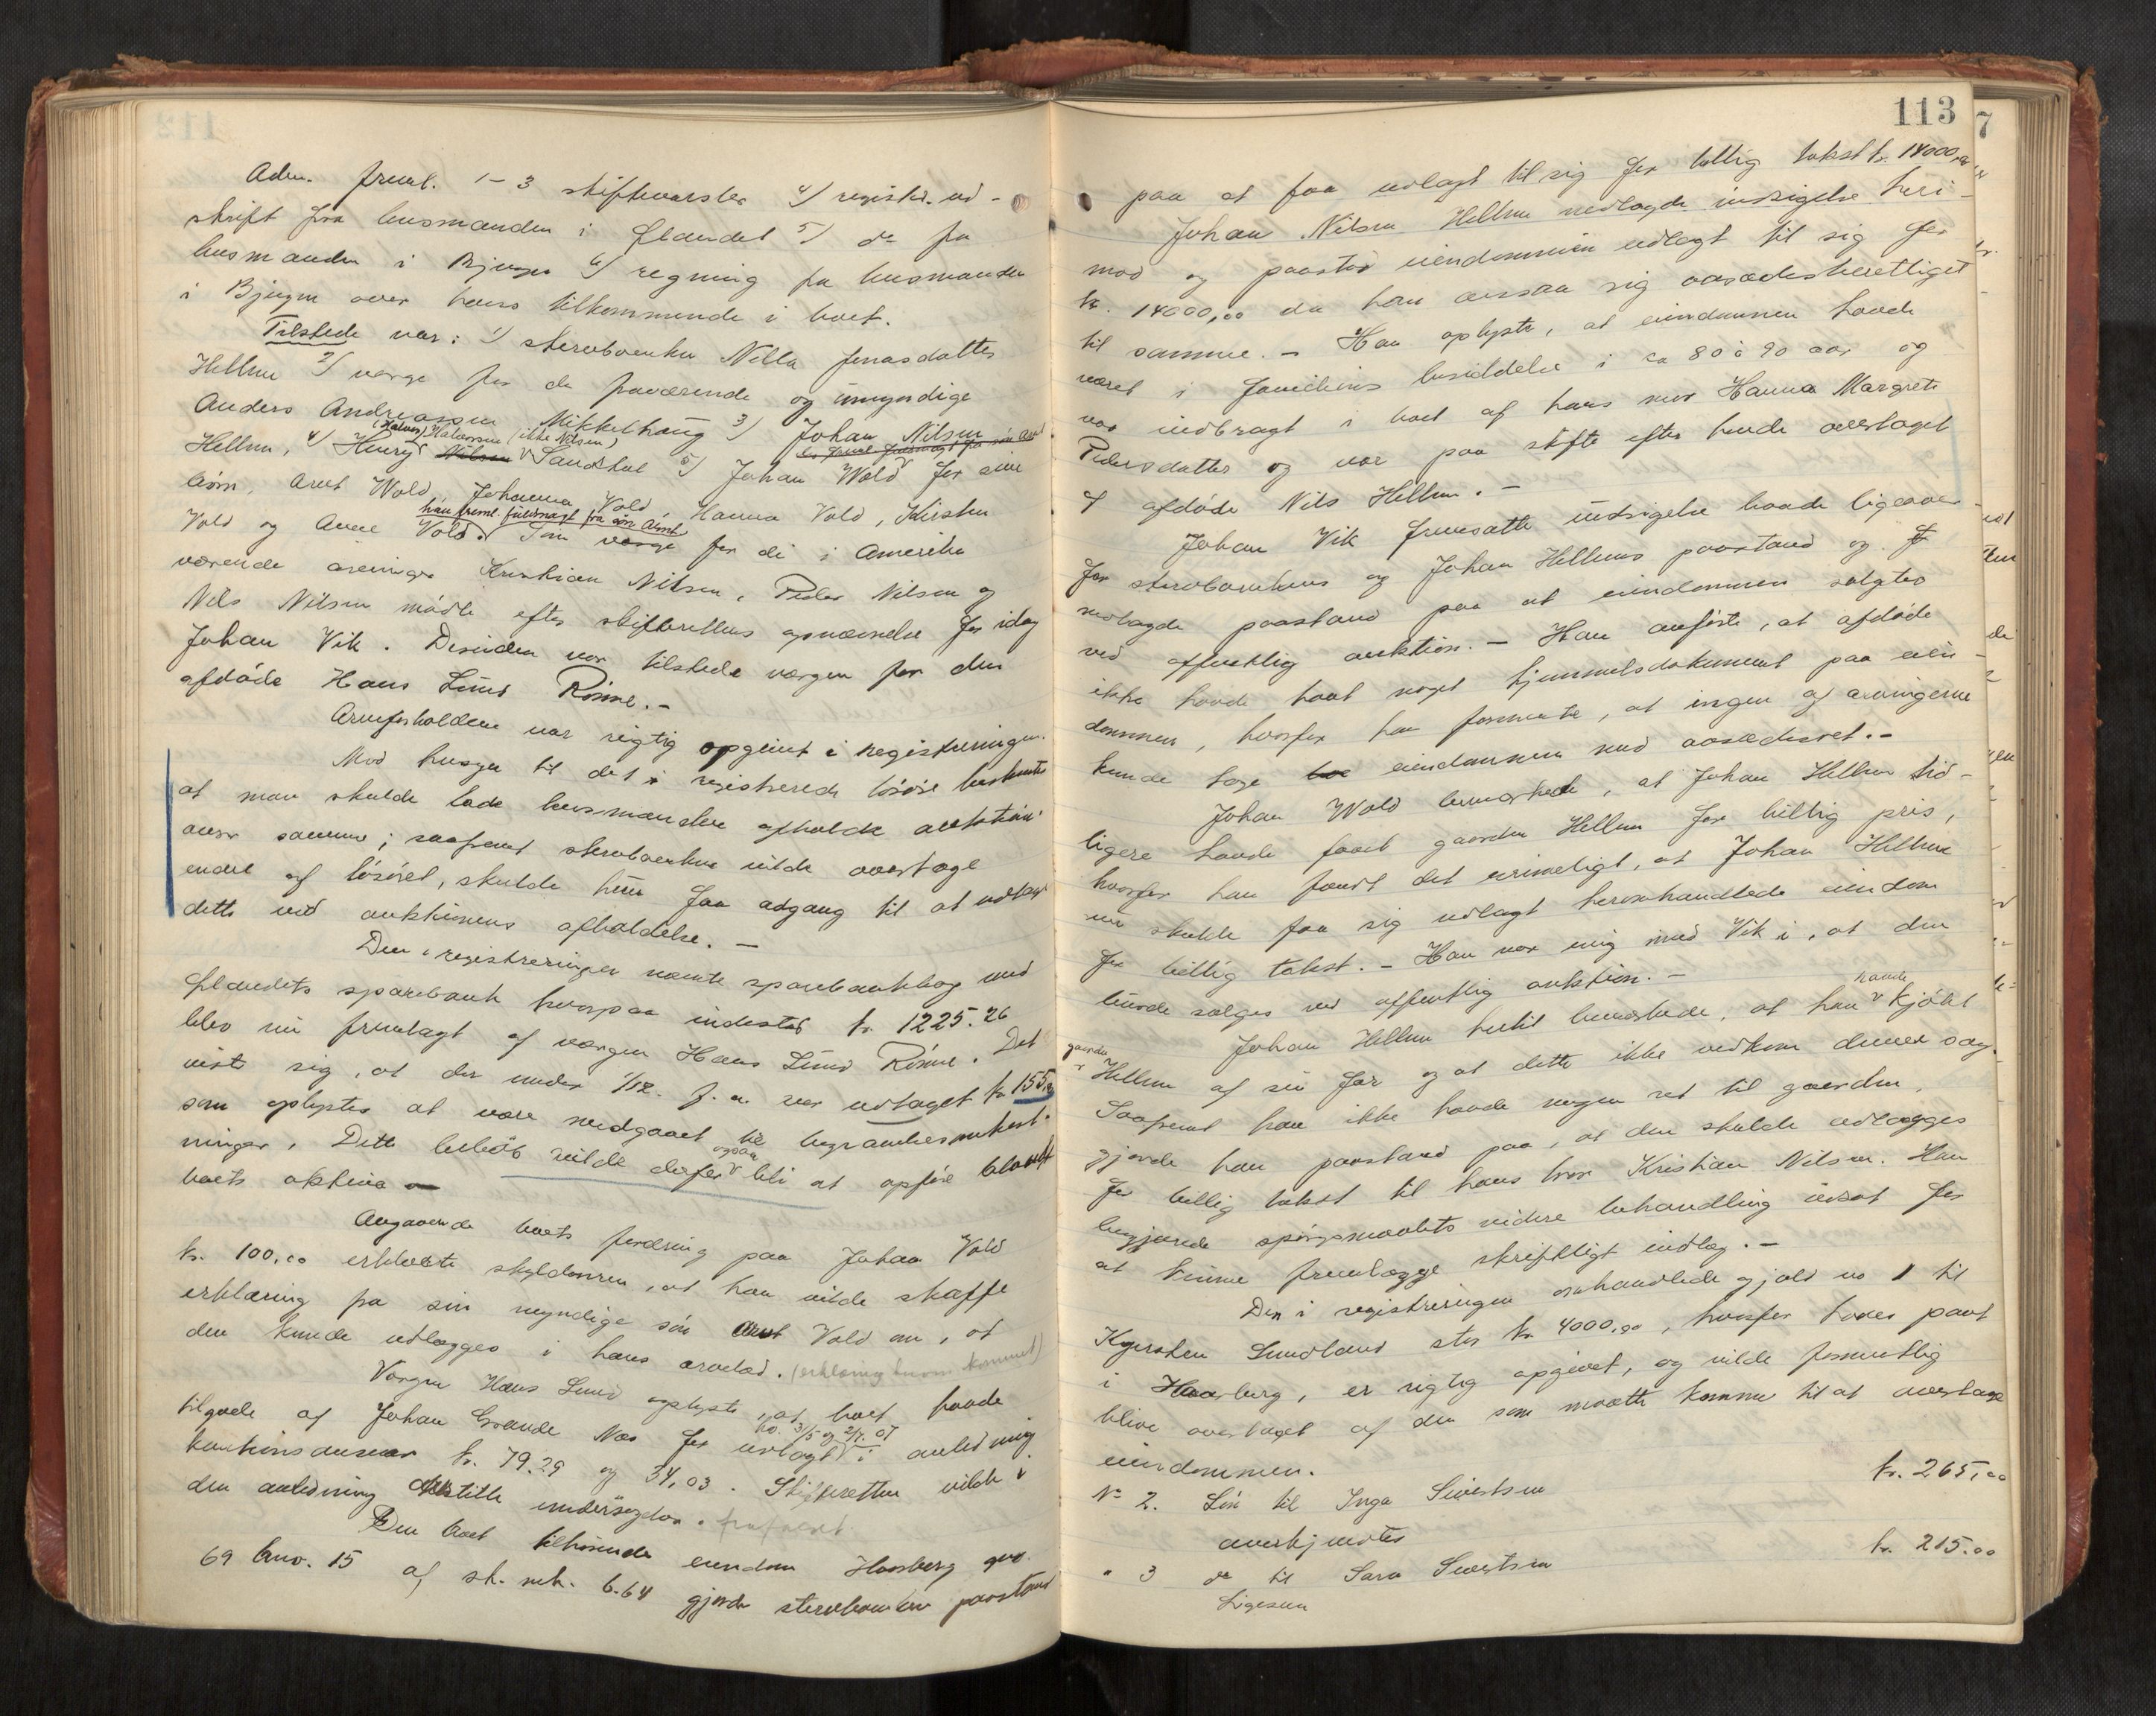 Adm. freml. 1-3 skiftevarsler 4/ registr. ud-
skrift fra lensmanden i Ørlandet 5/ do fra
lensmanden i Bjugn 6/ regning fra lensmanden
i Bjugn over hans tilkommende i boet.
Tilstede var: 1/ sterboenken Nilla Jonasdatter
Hellem 2/ verge for de fraværende og umyndige
Anders Andreassen Mikkelhaug 3/ Johan Nilsen
(Halvor) Halvorsen (ikke Nilsen)
Hellem, 4/ Henry Nilsen Sandstad 5/ Johan Wold for sine
børn, Arnt Wold, Johanna Vold, Hanna Vold, Kirsten
han freml. fuldmagt fra søn Arnt
Vold og Anne Vold. Som verge for de i Amerika
værende arvinger Kristian Nilsen, Peder Nilsen og
Nils Nilsen mødte efter skifterettens opnævnelse for idag
Johan Vik. Desuden var tilstede vergen for den
afdøde Hans Lund Rønne.-
Arveforholdene var rigtig opgivet i registreringen.
Med hensyn til det i registrerede løsøre besluttes
at man skulde lade lensmanden afholde auktion
over samme; saafremt sterboenken vilde overtage
endel af løsøret, skulde hun faa adgang til at udtage
dette ved auktionens afholdelse. -
Den i registreringen nævnte sparebankbog med
Ørlandets sparebank hvorpaa indestod kr. 1225.26
blev nu fremlagt af vergen Hans Lund Rønne. Det
viste sig, at der under 1/12. f.a. var udtaget kr. 155
som oplystes at være medgaaet til begravelsesomkost-
ninger. Dette beløb vilde derfor ogsaa bli at opføre blandt
boets aktiva
Angaaende boets fordring paa Johan Vold
kr. 100,00 erklærte skyldneren, at han vilde skaffe
erklæring fra sin myndige søn Arnt Vold om, at
den kunde udlægges i hans arvelod. (erklæring herom kommet)
Vergen Hans Lund oplyste, at boet havde
tilgode af Johan Grande Næs for udlagt ho. 3/5 og 2/7. 07 i anledning
kautionsansvar kr. 79.29 og 34,03. Skifteretten vilde i
den anledning undersøges.
Den boet tilhørende eiendom Haarberg gno.
69 bno. 15 af sk. mk. 6.64 gjorde sterboenken paastand
113
paa at faa udlagt til sig for billig takst kr. 14000,00
Johan Nilsen Hellem nedlagde indsigelse heri-
mod og paastod eiendommen udlagt til sig for
kr. 14000,00 da han ansaa sig aasædesberettiget
til samme. - Han oplyste, at eiendommen havde
været i familiens besiddelse i ca 80 à 90 aar og
var indbragt i boet af hans mor Hanna Margrete
Pedersdatter og var paa skifte efter hende overtaget
af afdøde Nils Hellem. -
Johan Vik fremsatte indsigelse baade ligeover-
for sterboenkens og Johan Hellems paastand og
nedlagde paastand paa at eiendommen solgtes
ved offentlig auktion. - Han anførte, at afdøde
ikke havde havt noget hjemmelsdokument paa eien-
dommen, hvorfor han formente, at ingen af arvingerne
kunde tage eiendommen med aasædesret.-
Johan Wold bemærkede, at Johan Hellem tid-
ligere havde faaet gaarden Hellem for billig pris,
hvorfor han fandt det urimeligt, at Johan Hellem
nu skulde faa sig udlagt heromhandlede eiendom
for billig takst. - Han var enig med Vik i, at den
burde sælges ved offentlig auktion. -
Johan Hellem hertil bemærkede, at han havde kjøbt
gaarden Hellem af sin far og at dette ikke vedkom denne sag.
Saafremt han ikke havde nogen ret til gaarden,
gjorde han paastand paa, at den skulde udlægges
for billig takst til hans bror Kristian Nilsen. Han
begjærede spørgsmaalets videre behandling udsat for
at kunne fremlægge skriftligt indlæg. -
Den i registreringen omhandlede gjæld no 1 til
Kyersten Sundland stor kr. 4000,00, hvorfor haves pant
i Haarberg, er rigtig opgivet, og vilde formentlig
blive overtaget af den som maatte komme til at overtage
eiendommen.
No 2. Løn til Inga Sivertsen kr. 265,00
anerkjendtes
" 3 do til Sara Sivertsen kr. 215.00
Ligesaa